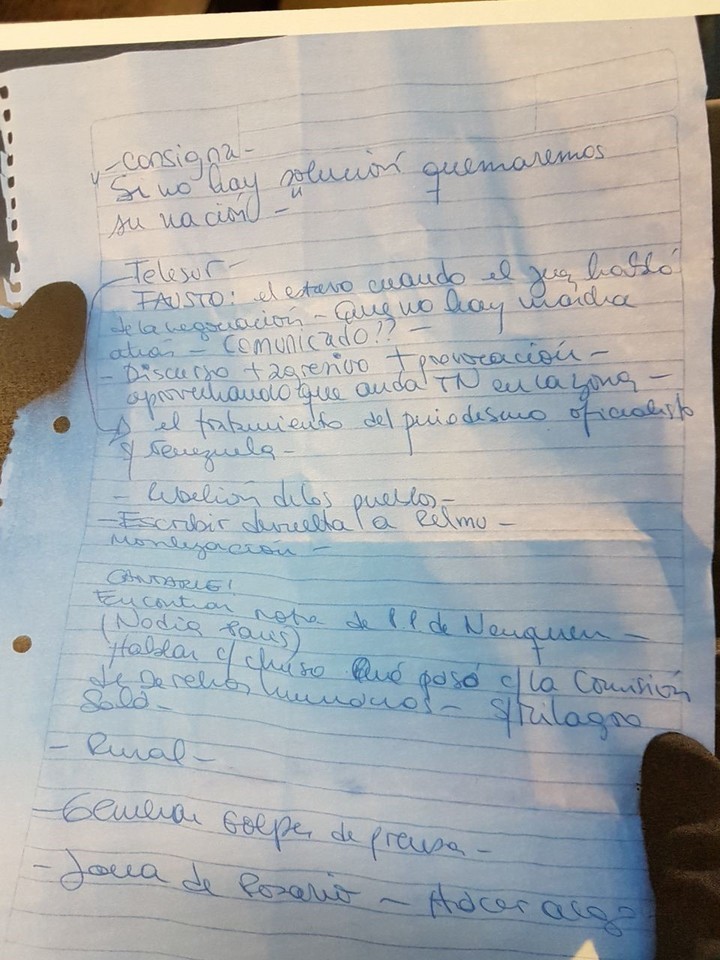 - Consigna -
Si no hay solución quemaremos
su nación - "
- Telesur -
FAUSTO: el estuvo cuando el juez habló
de la negociación - Que no hay marcha
atrás - Comunicado?? -
- Discurso + agresivo + provocación -
aprovechando que anda TN en la zona -
el tratamiento del periodismo oficialista
s/ Venezuela -
- Rebelión de los pueblos -
- Escribir de vuelta a Relmo -
CANTARLE!
Encontrar nota de P.P. de Neuquen -
(Nadia
Hablar c/ chuso Qué pasó c/ la Comisión
de Derechos Humanos - s/ Milagro
Sala -
- Rural -
- Generar golpes de prensa -
- de Rosario - Hacer algo